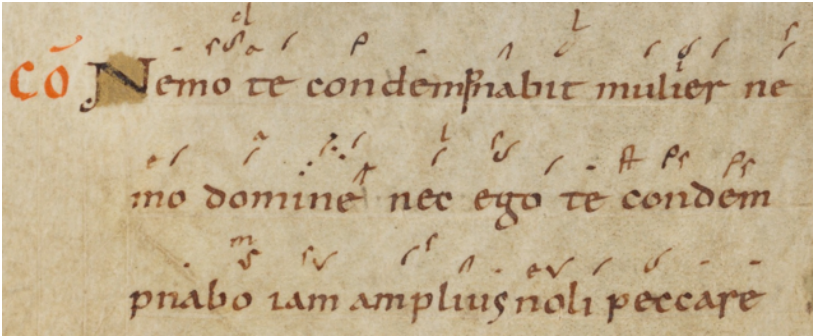 Cō Nemo te condempnabit mulier ne
mo domine nec ego te condem
pnabo iam amplius noli peccare